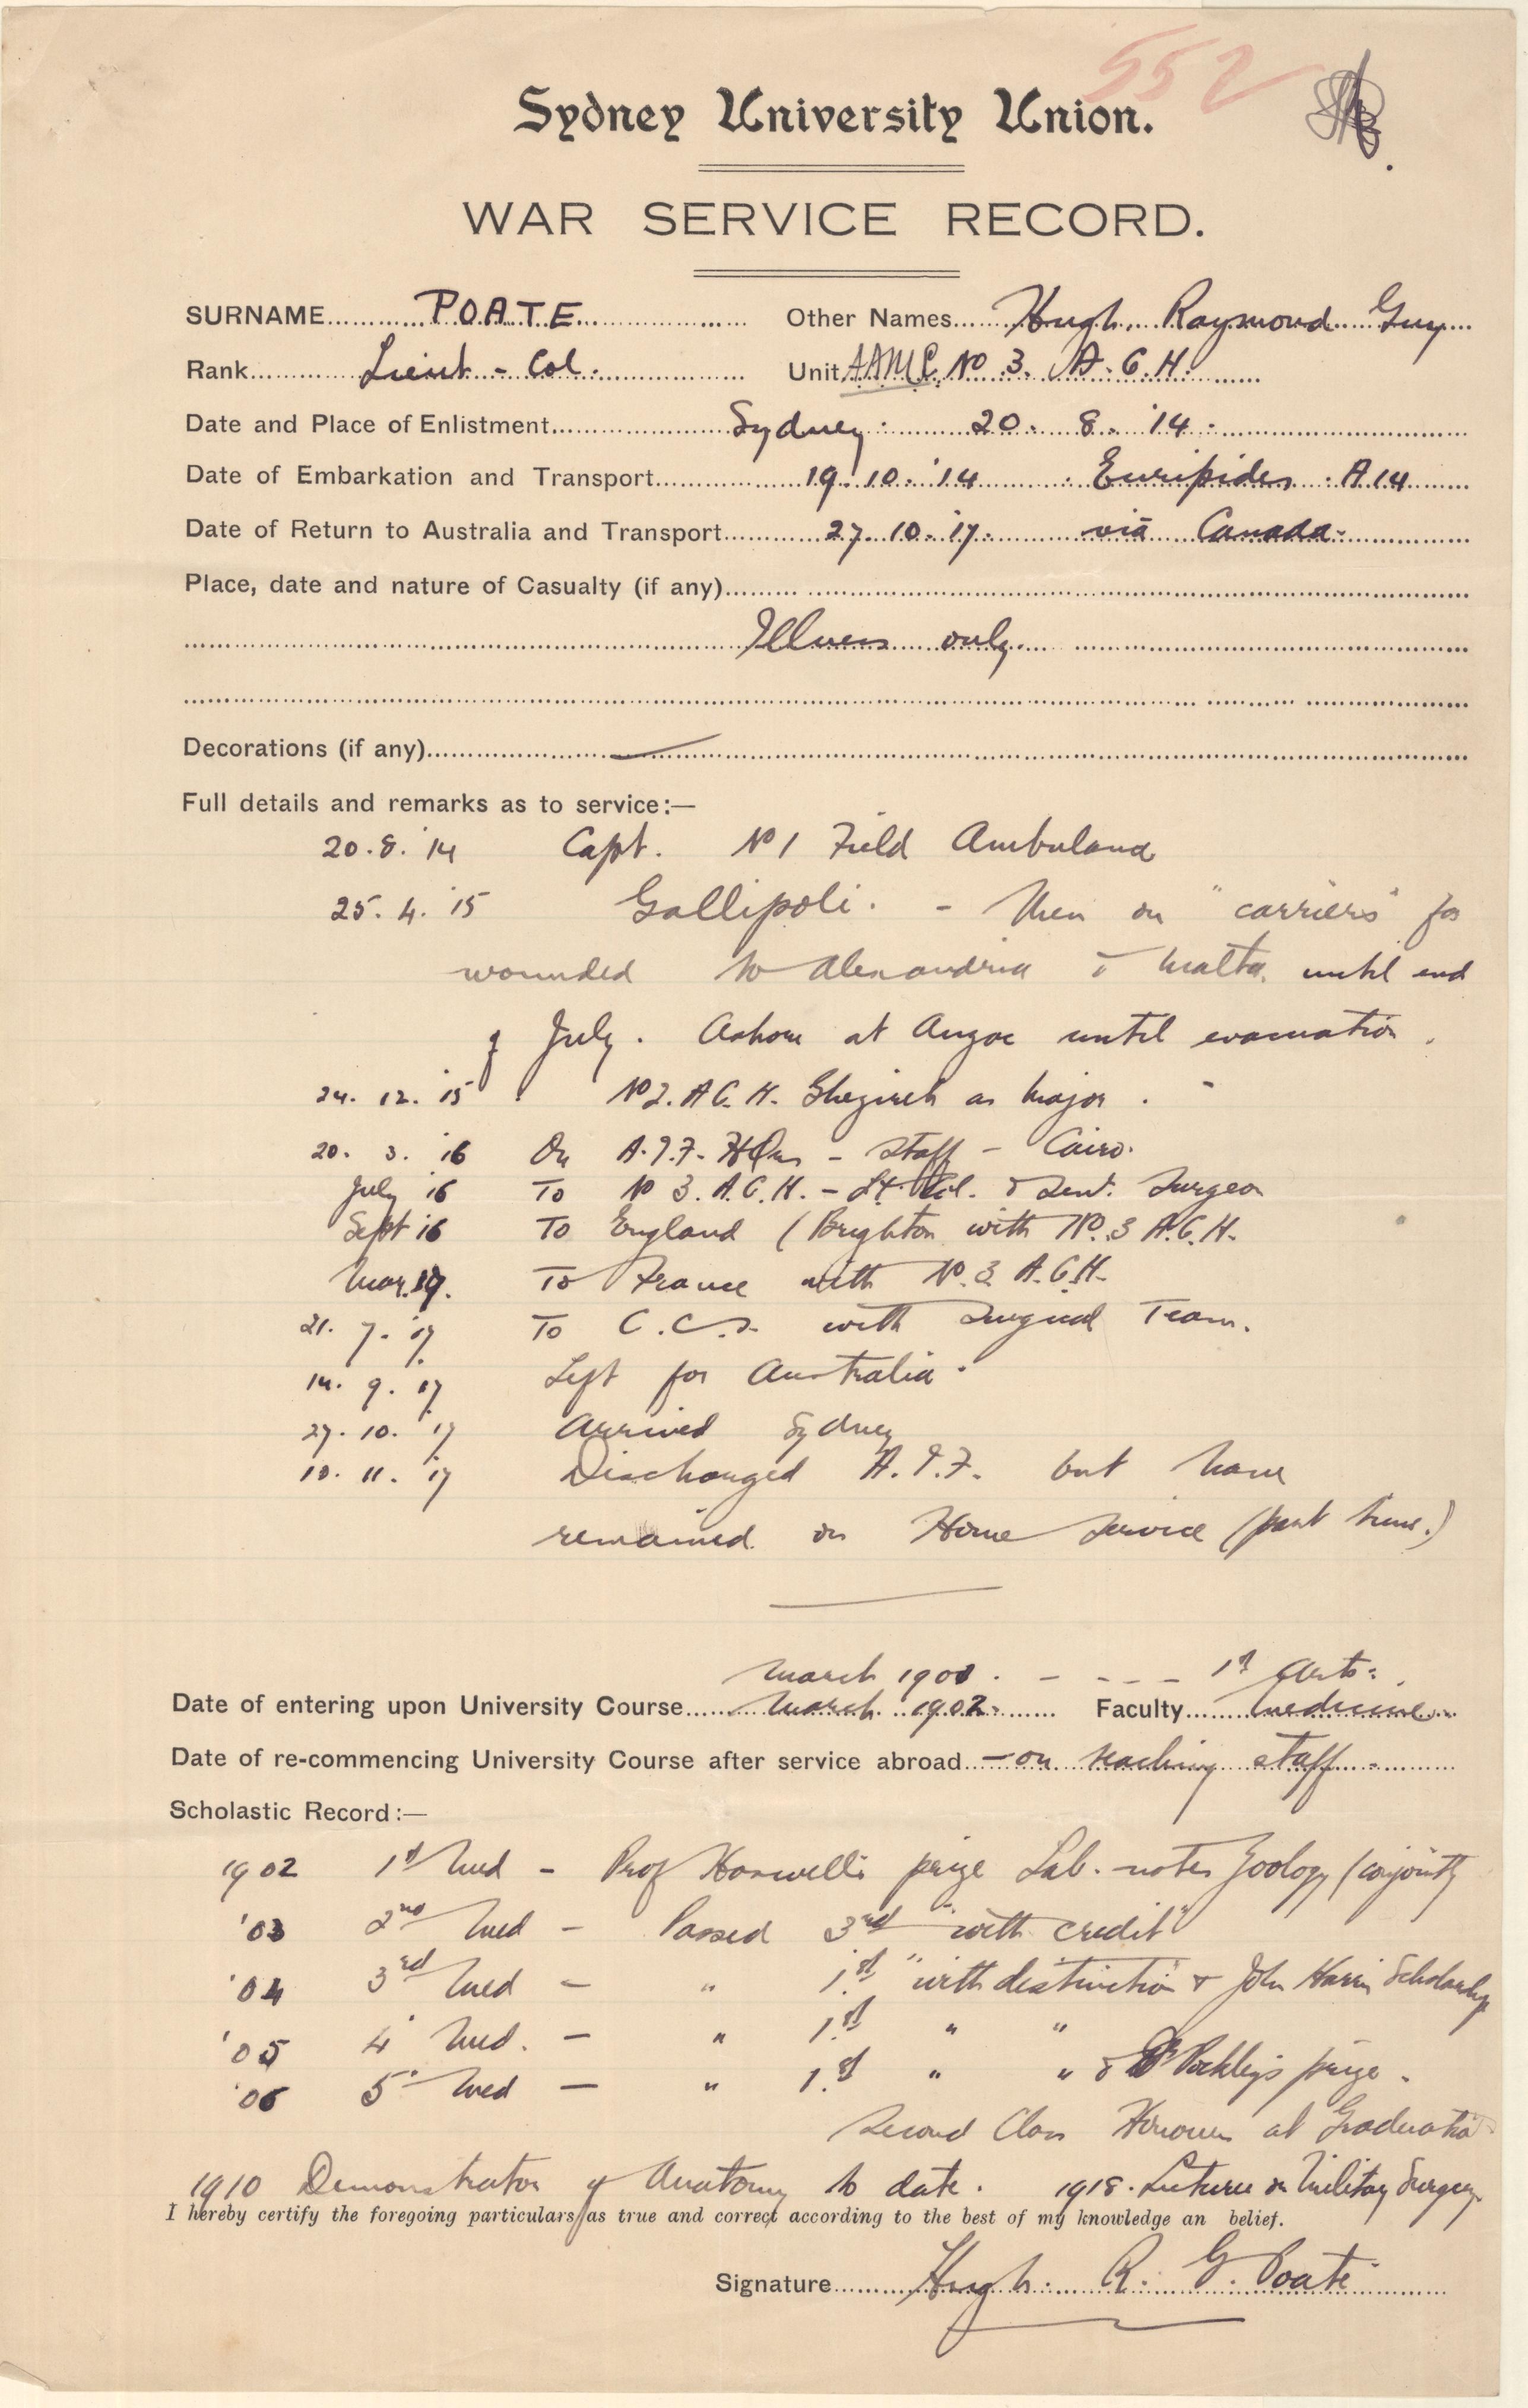 552
Sydney University Union.
WAR SERVICE RECORD.
SURNAME POATE Other Names Hugh Raymond Guy
Rank Lieut-Col. Unit AAMC No 3. A.G.H.
Date and Place of Enlistment Sydney. 20. 8. '14.
Date of Embarkation and Transport 19. 10. '14 Euripides. A14
Date of Return to Australia and Transport 27. 10. '17. via Canada.
Place, date and nature of Casualty (if any)
Illness only.
Decorations (if any) —
Full details and remarks as to service:—
20. 8. '14 Capt. No 1 Field Ambulance
25. 4. '15 Gallipoli. - Then on "carriers" for
wounded to Alexandria & Malta. until end
of July. Ashore at Anzac until evacuation.
24. 12. '15. No 2. A.G.H. Ghezireh as Major.
20. 3. '16 On A.I.F. HQrs - staff - Cairo.
July '16 To No 3. A.G.H. - Lt. Col. & Sen. Surgeon
Sept 16 To England (Brighton with No. 3 A.G.H.
Mar. 17. To France with No. 3 A.G.H.
21. 7. '17. To C.C.S. with Surgical Team.
14. 9. '17 Left for Australia.
27. 10. '17 Arrived Sydney
10. 11. '17 Discharged A.I.F. but have
remained on Home Service (part time.)
March 1901. - - - - 1st Arts.
Date of entering upon University Course March 1902. Faculty Medicine
Date of re-commencing University Course after service abroad — on teaching staff.
Scholastic Record:—
1902 1st Med - Prof Haswell's prize Lab. notes Zoology (conjointly
'03 2nd Med - Passed 3rd "with credit"
'04 3rd Med - " 1st "with distinction & John Harris Scholarship
'05 4 Med. - " 1st " "
'06 5 Med - " 1st " " & Dr Pockley's prize.
Second Class Honours at Graduation
1910 Demonstrator of Anatomy to date. 1918. Lecturer on Military Surgery.
I hereby certify the foregoing particulars as true and correct according to the best of my knowledge an belief.
Signature Hugh R. G. Poate